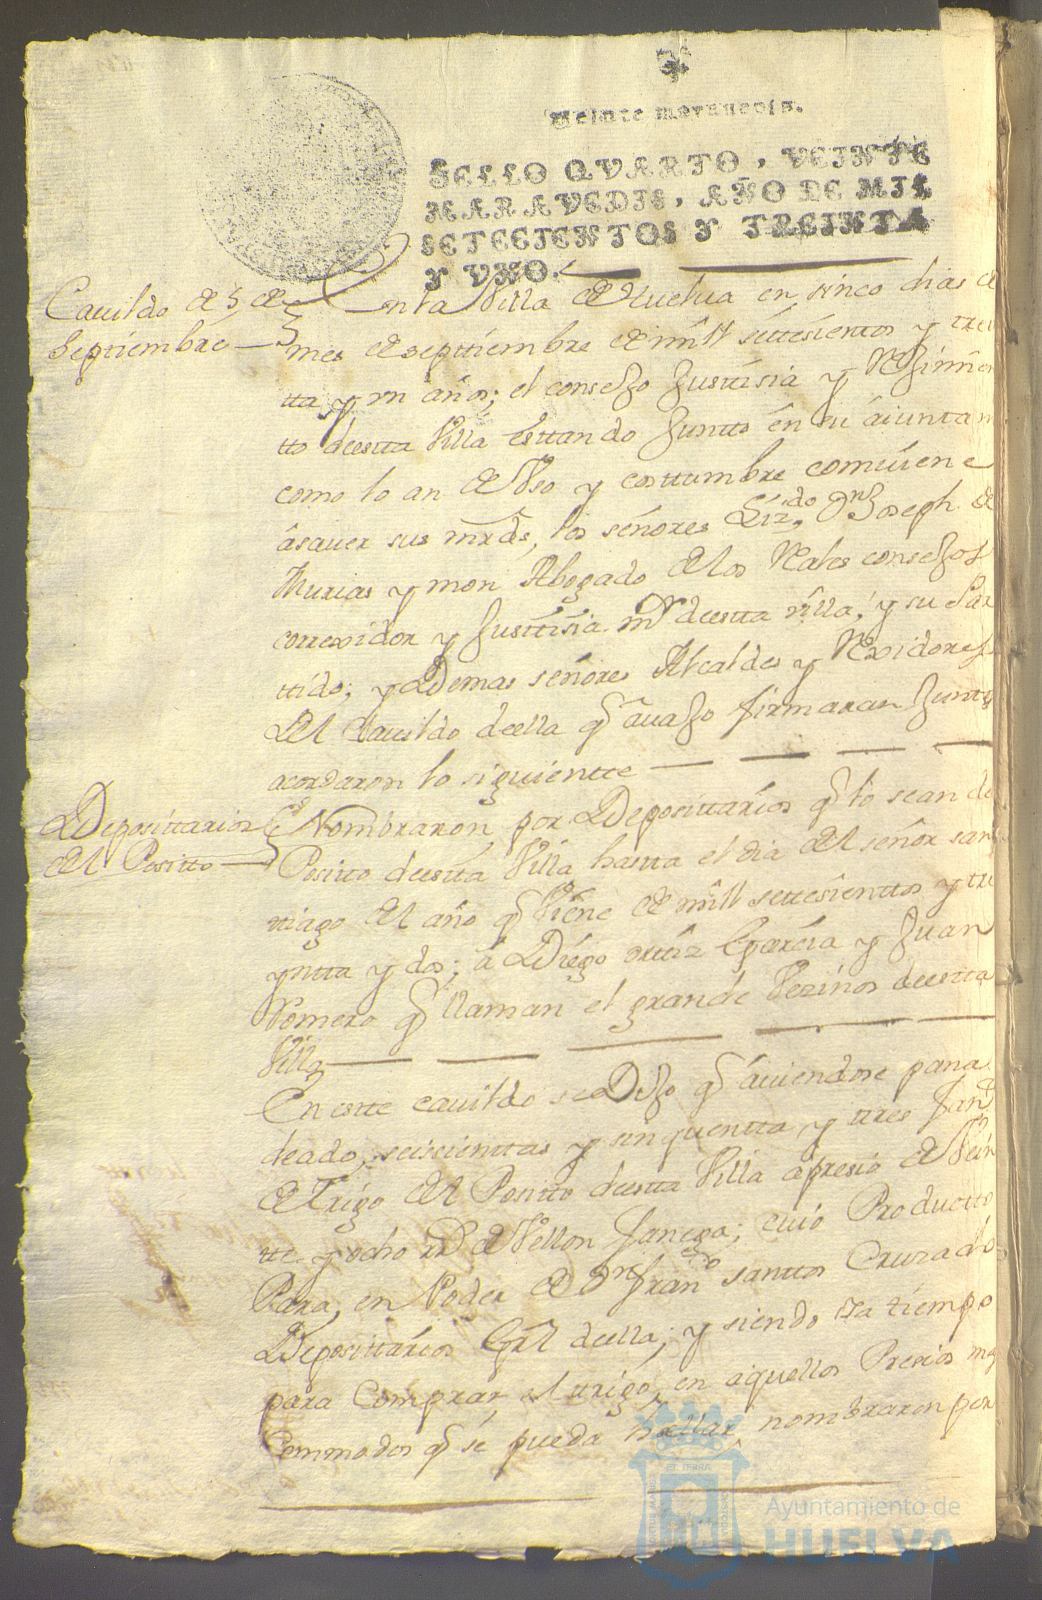 Veinte maravedis.
SELLO QVARTO, VEINTE
MARAVEDIS, AÑO DE MIL
SETECIENTOS Y TREINTA
Y VNO.
Cauildo de 5 de
Septiembre
En la Villa de Huelua en sinco dias de
mes de septtiembre de mill settesientos y trei
tta y vn años; el consexo Justtisia y Reximien
tto deestta Villa esttando Juntts en su aiuntam
como lo an de Vso y costtumbre comuiene
âsauer sus mrds, los señores Lizdo Dn Joseph de
Murias y mon Abogado de los Reales consexos
correxidor y Justtisia mr deestta villa, y su Par
ttido; y Demas señores Alcaldes y Rexidores
del Cauildo deella q auaxo firmaran Junts
acordaron lo siguientte
Deposittarios
del Positto
Nombraron por Deposittarios q lo sean de
Positto deestta Villa hastta el dia del señor san
ttiago del año q Viene de mill settesienttos y tre
yntta y dos; â Diego orttiz Garcia y Juan
Romero q llaman el grande Vezinos deestta
Villa
En estte cauildo se Dixo q âuiendose pana
deado, seiscienttas y sinquentta y tres fans
de Trigo del Positto deestta Villa apresio de Vein
tte y ocho rrs de Vellon fanega; cuio Productto
Para, en Poder de Dn franco santtos Cruzado
Deposittarios Grl deella; y siendo ya tiempo
para Comprar el trigo, en aquellos Presios mas
Commodos q se pueda hallar, nombraron por
Ayuntamiento de
HUELVA